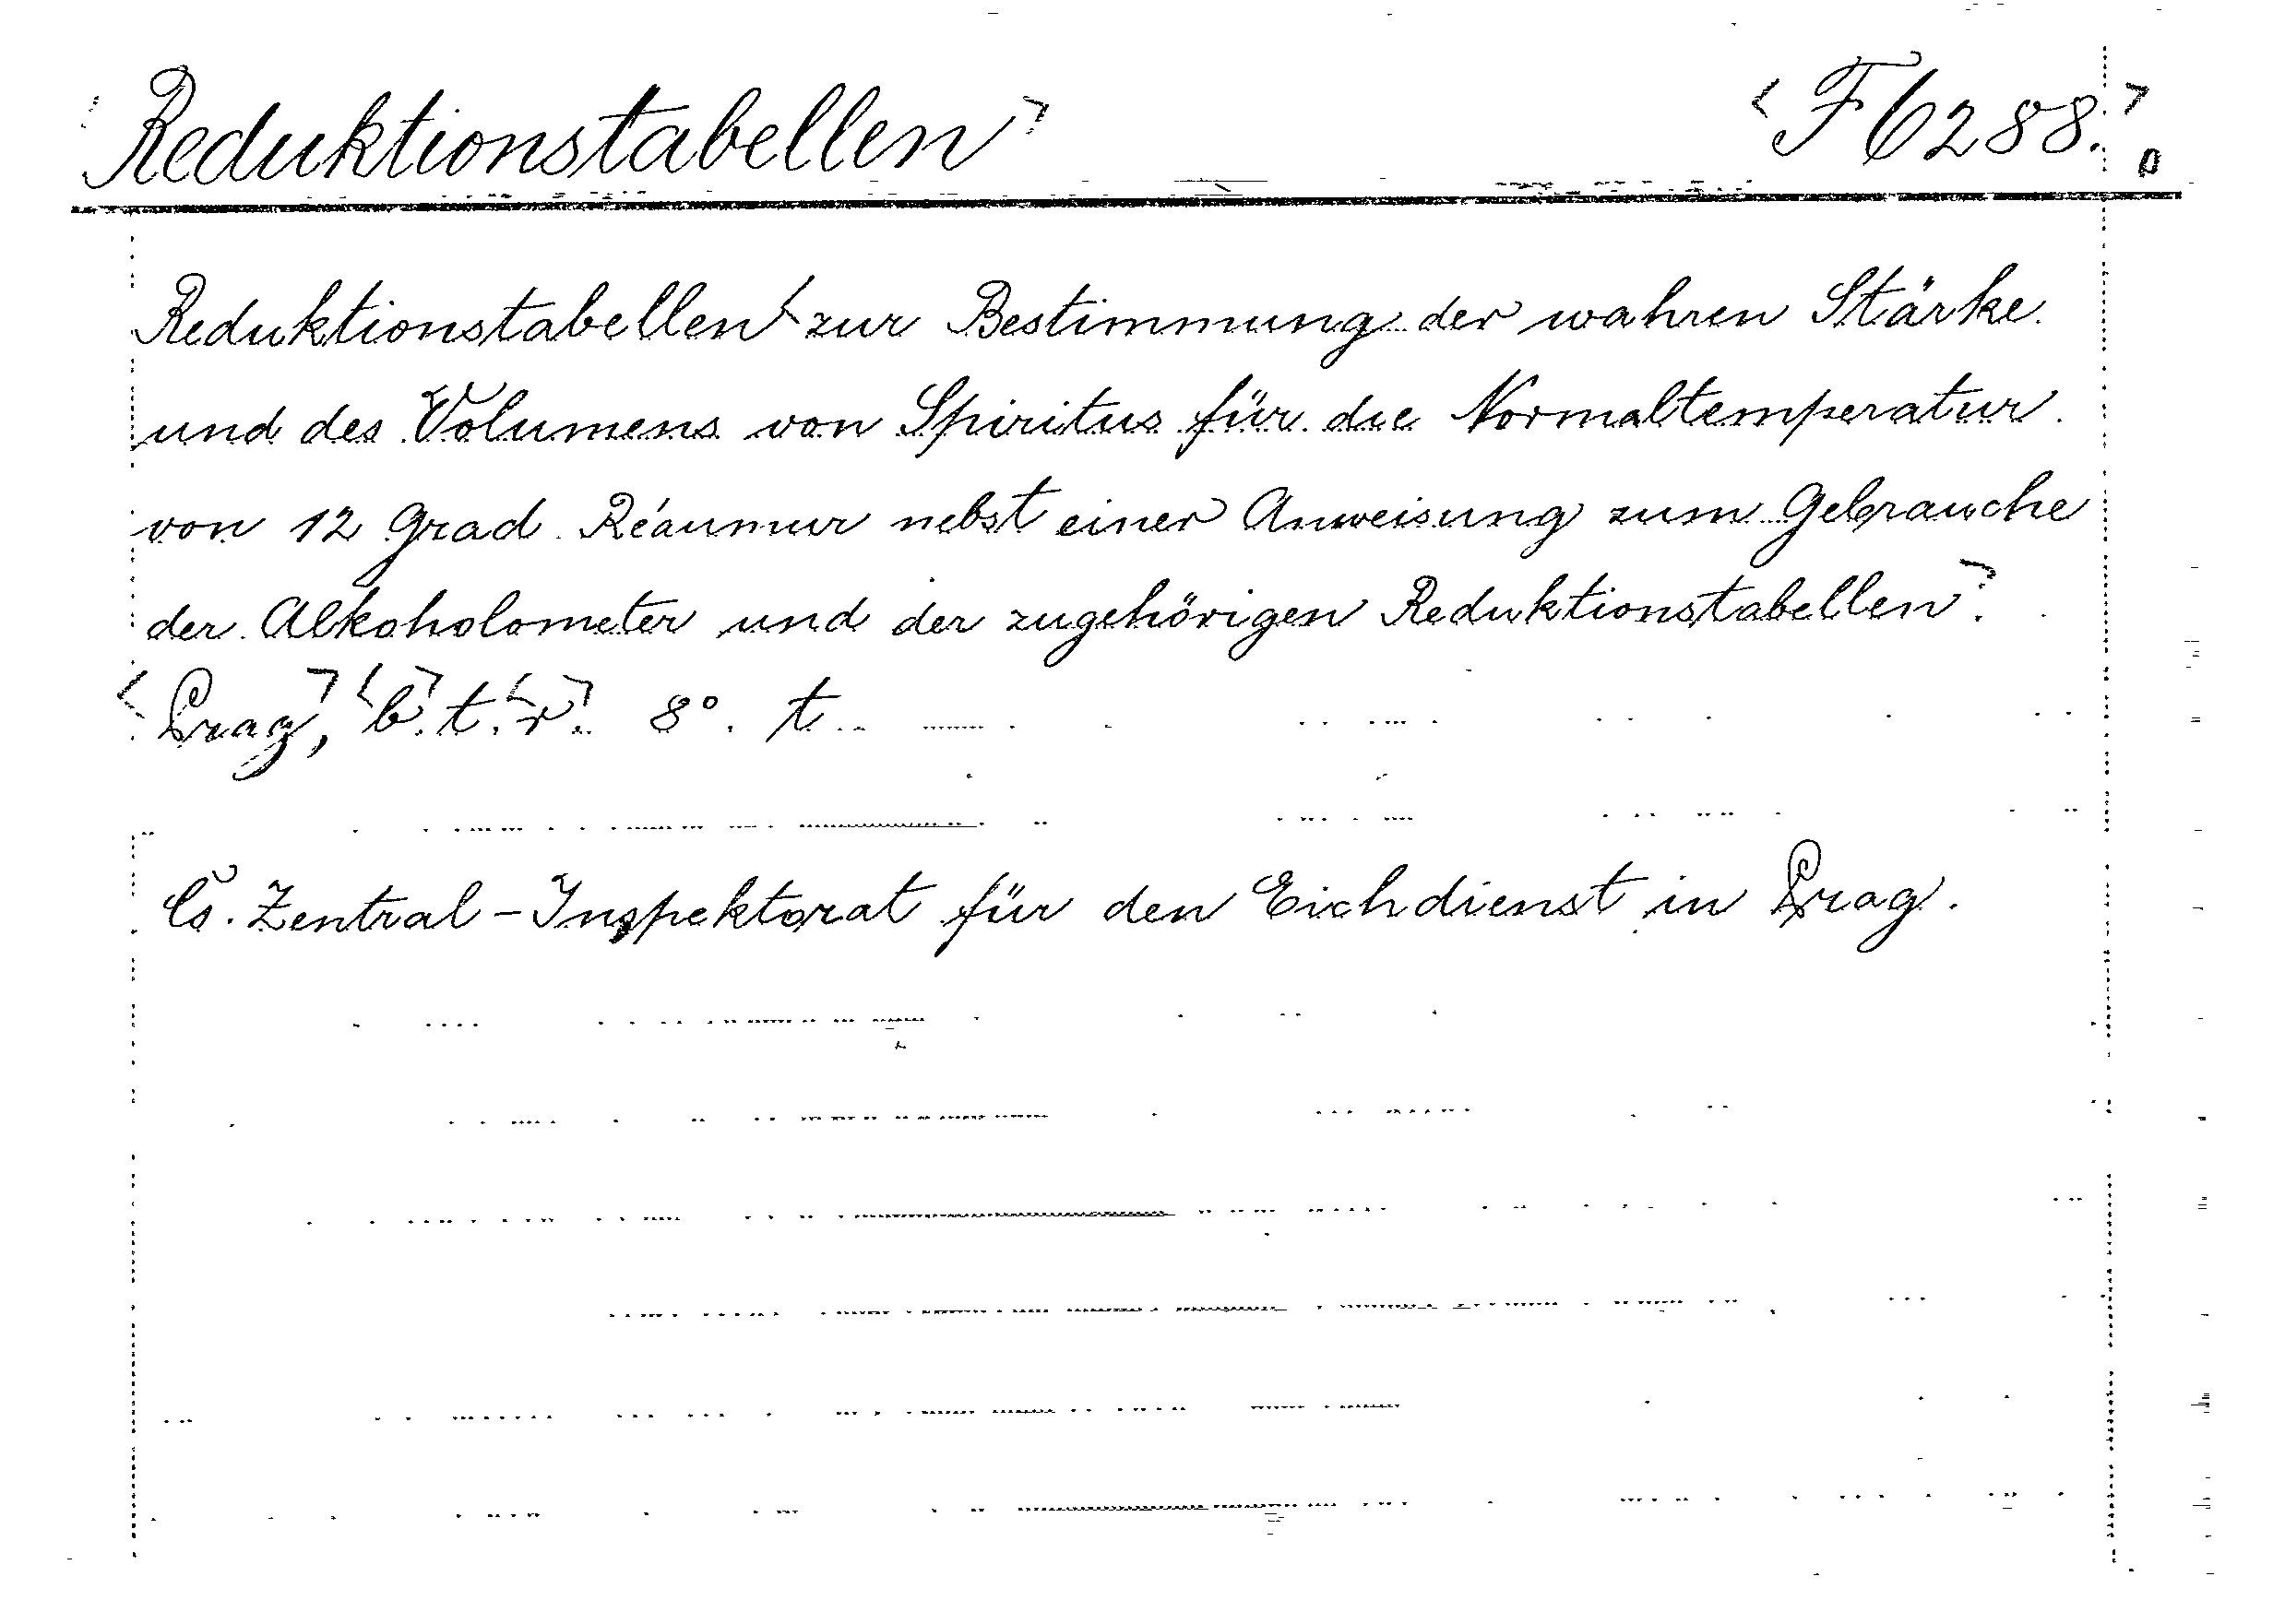 Reduktionstabellen
F 6288.
Reduktionstabellen zur Bestimmung der wahren Stärke
und des Volumens von Spiritus für die Normaltemperatur
von 12 Grad Réaumur nebst einer Anweisung zum Gebrauche
der Alkoholometer und der zugehörigen Reduktionstabellen.
Prag, b. t. r. 8°. t.
Čs. Zentral-Inspektorat für den Eichdienst in Prag.